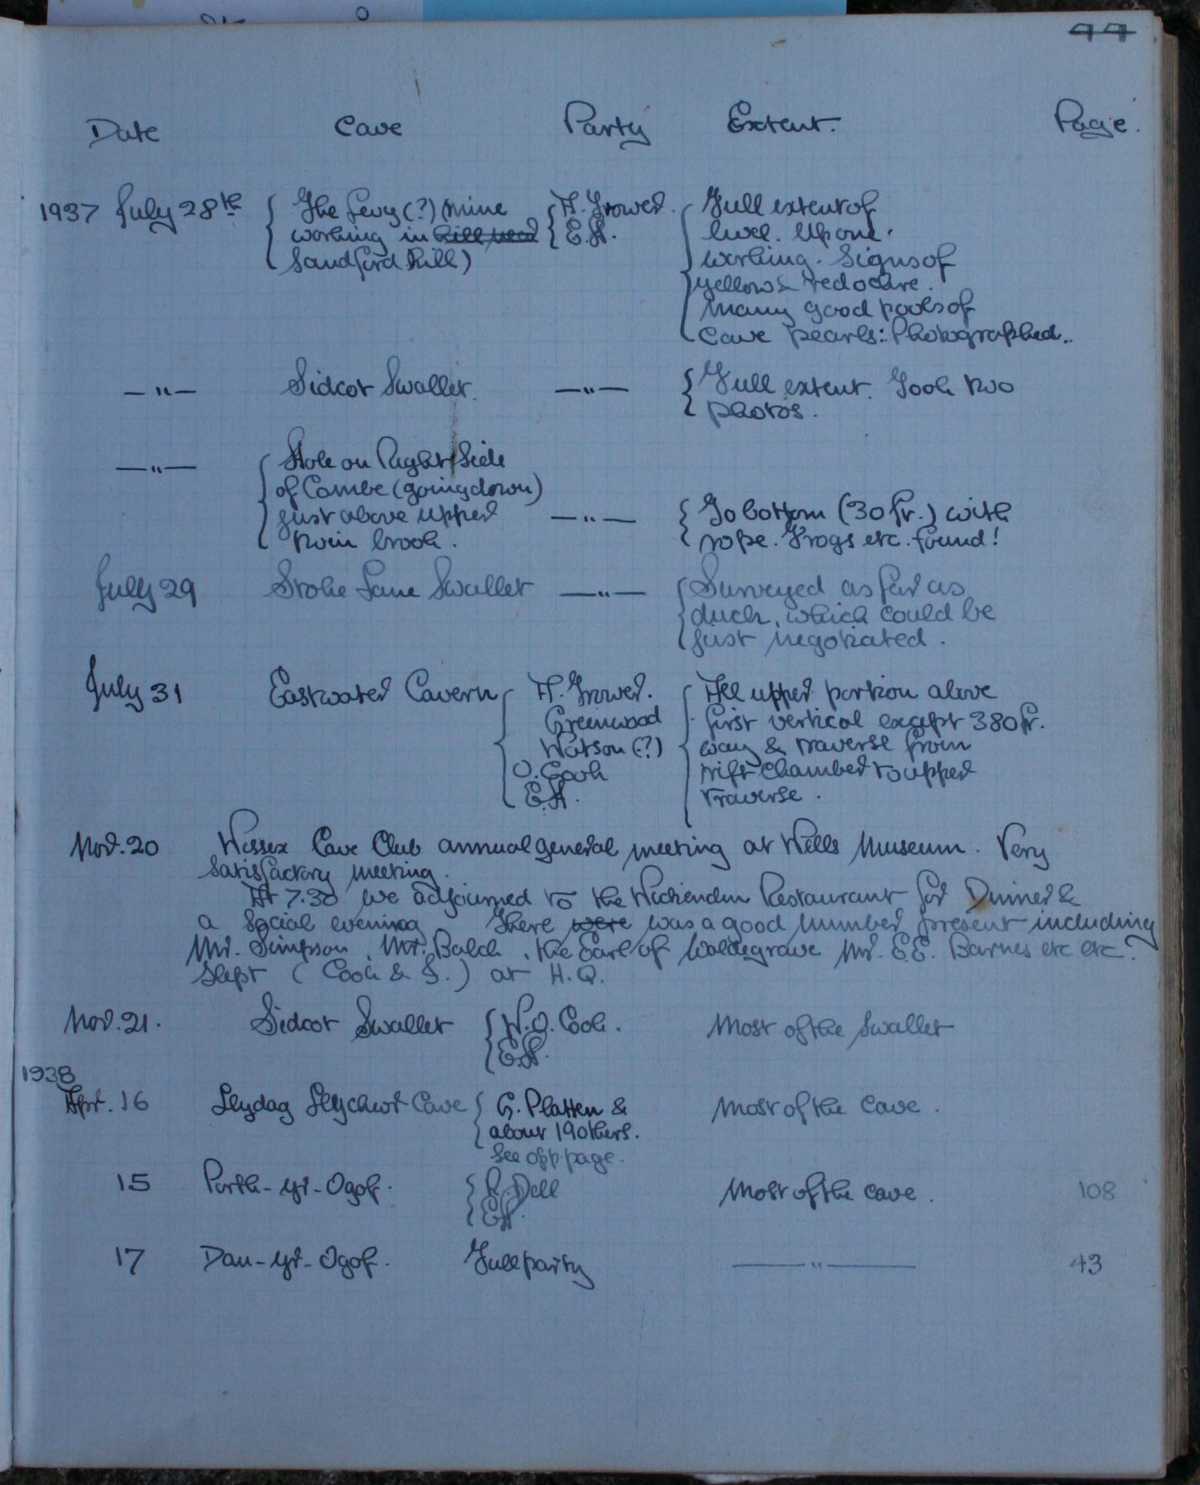 44
Date Cave Party Extent. Page.
1937 July 28th The Levy (?) (Mine H. Trower. Full extent of
working in hill near E.H. level. Up one
Sandford Hill) working. Signs of
yellow & red ochre.
Many good pools of
cave pearls: Photographed..
—"— Sidcot Swallet. —"— Full extent. Took two
photos.
—"— Hole on Right Side
of Combe (going down)
just above upper —"— To bottom (30 ft.) with
twin brook. rope. Frogs etc. found!
July 29 Stoke Lane Swallet —"— Surveyed as far as
duck, which could be
just negotiated.
July 31 Eastwater Cavern H. Trower. All upper portion above
Greenwood first vertical except 380 ft.
Watson (?) way & traverse from
O. Cook rift chamber to upper
E.H. traverse.
Nov. 20 Wessex Cave Club annual general meeting at Wells Museum. Very
satisfactory meeting.
At 7.30 we adjourned to the Restaurant for Dinner &
a social evening There were was a good number present including
Mr. Simpson, Mr. Balch, the Earl of Waldegrave Mr. E.E. Barnes etc etc.
Slept (Cook & I.) at H.Q.
Nov. 21. Sidcot Swallet W.O. Cook. Most of the Swallet
E.H.
1938
Apr. 16 Llydag Llychwr Cave G. Platten & Most of the cave.
about 19 others.
See opp. page.
15 Porth-yr-Ogof. Dell Most of the cave. 108
E.H.
17 Dan-yr-Ogof. Full party —"— 43